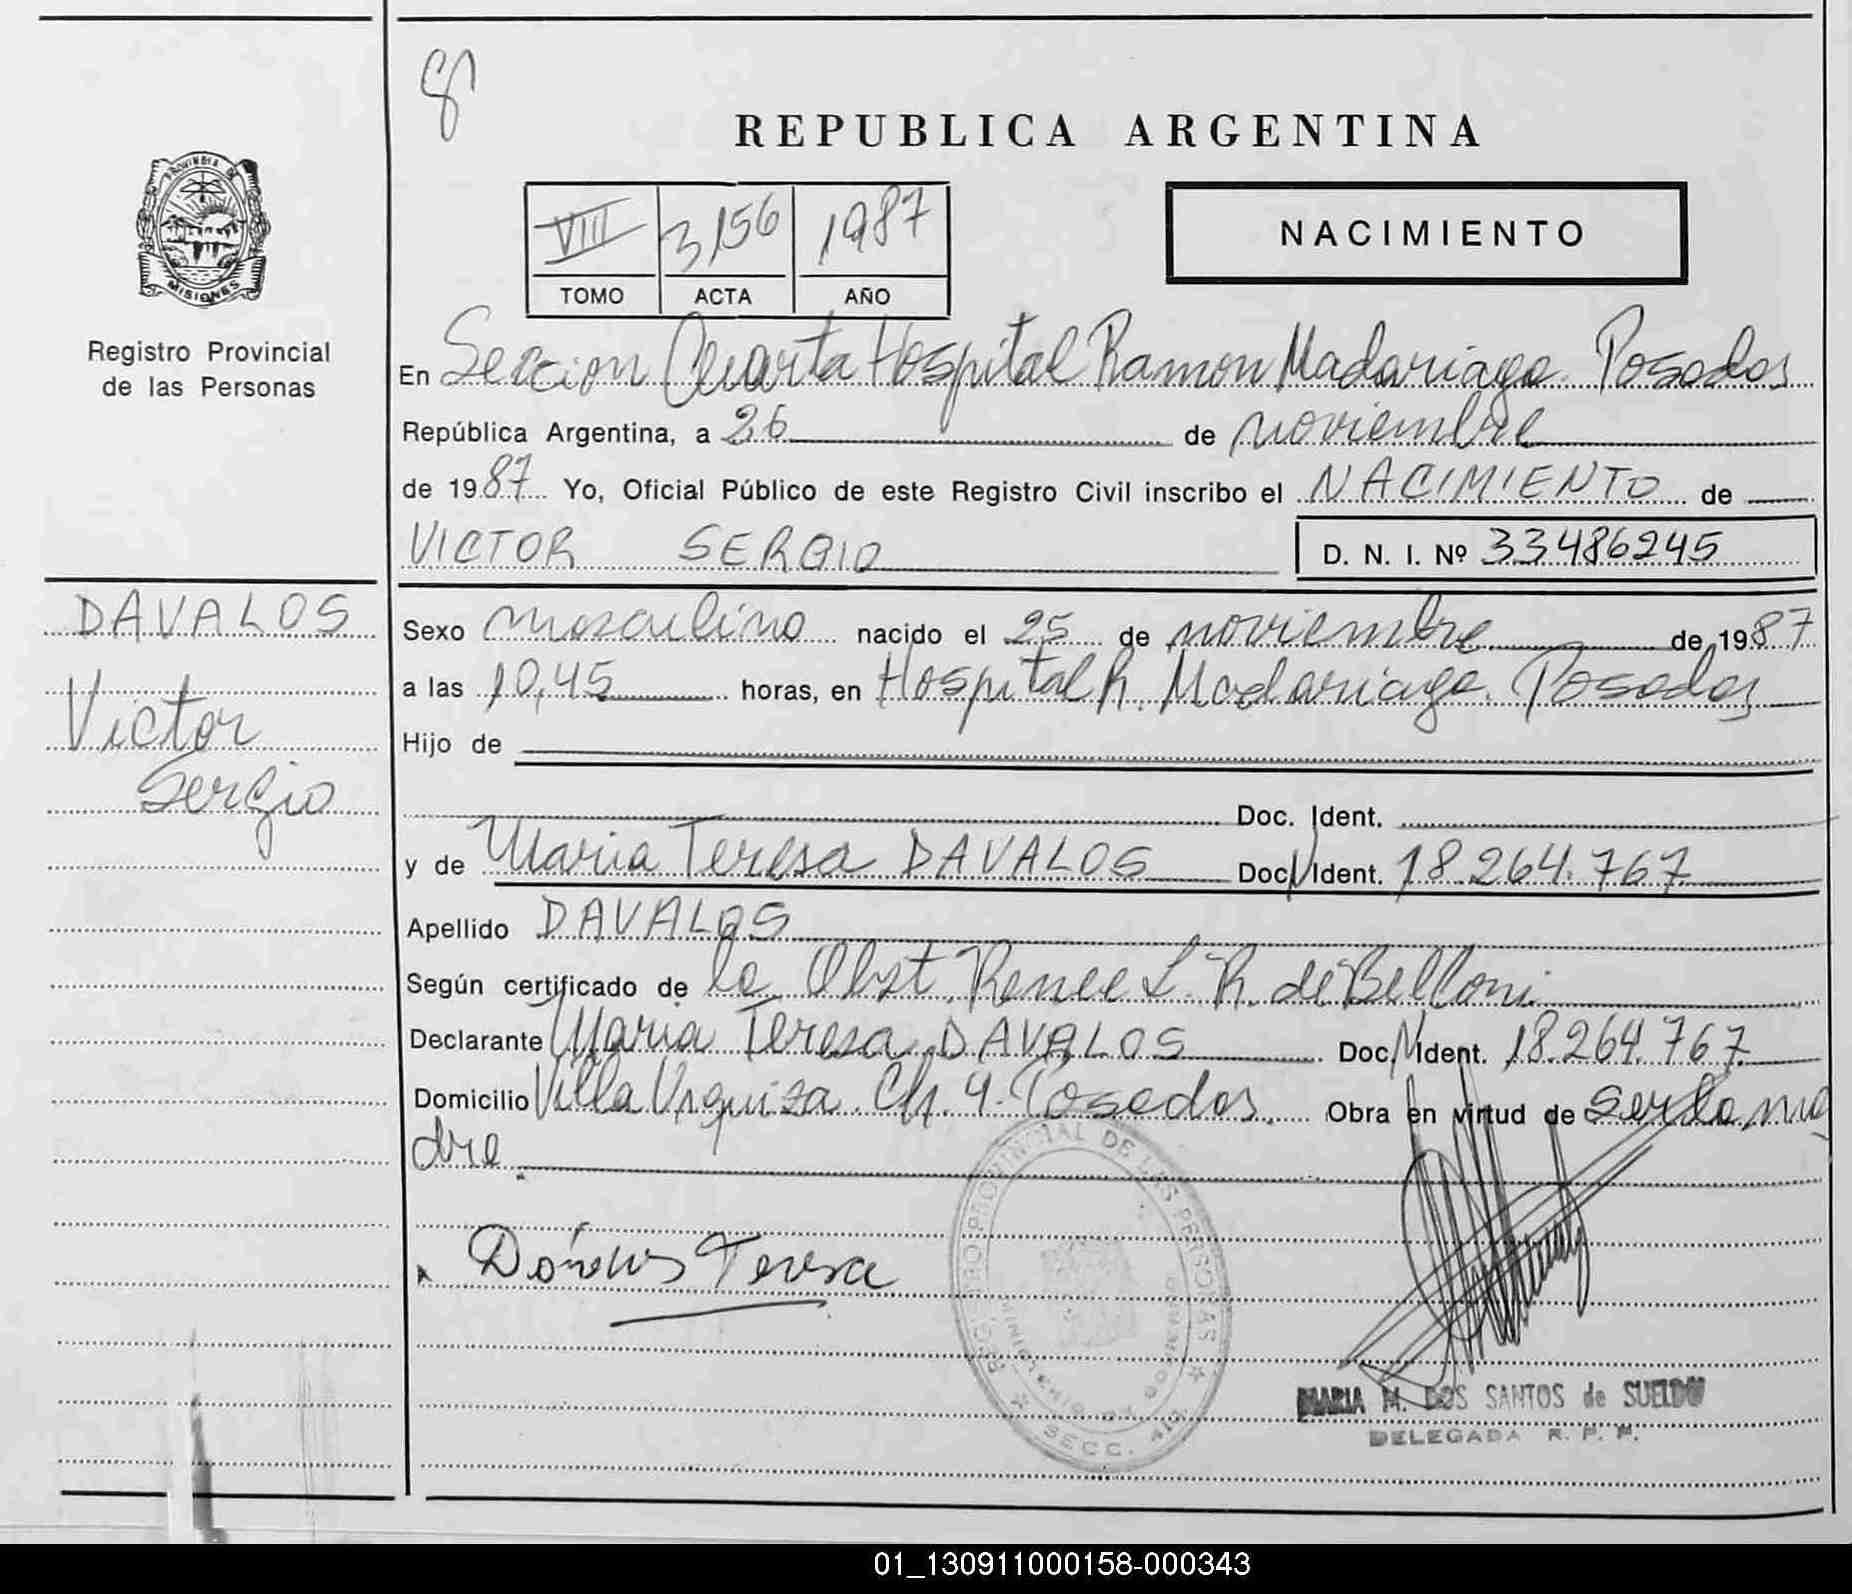 8
REPUBLICA ARGENTINA
PROVINCIA DE
MISIONES
Registro Provincial
de las Personas
VIII 3156 1987
TOMO ACTA AÑO
NACIMIENTO
En Seccion Cuarta Hospital Ramon Madariaga. Posadas
República Argentina, a 26 de noviembre
de 1987 Yo, Oficial Público de este Registro Civil inscribo el NACIMIENTO de
VICTOR SERGIO D. N. I. Nº 33486245
DAVALOS
Victor
Sergio
Sexo masculino nacido el 25 de noviembre de 1987
a las 10,45 horas, en Hospital R. Madariaga. Posadas
Hijo de
Doc. Ident.
y de Maria Teresa DAVALOS Doc. N Ident. 18.264.767
Apellido DAVALOS
Según certificado de la Obst. Renee L. R. de Belloni
Declarante Maria Teresa DAVALOS Doc. N Ident. 18.264.767
Domicilio Villa Urquiza. Ch. 4. Posadas. Obra en virtud de ser la ma
dre
Teresa
REGISTRO PROVINCIAL DE LAS PERSONAS
MINISTERIO DE GOBIERNO
SECC. 4ta
MARIA M. DOS SANTOS de SUELDO
DELEGADA R. P. P.
01_130911000158-000343